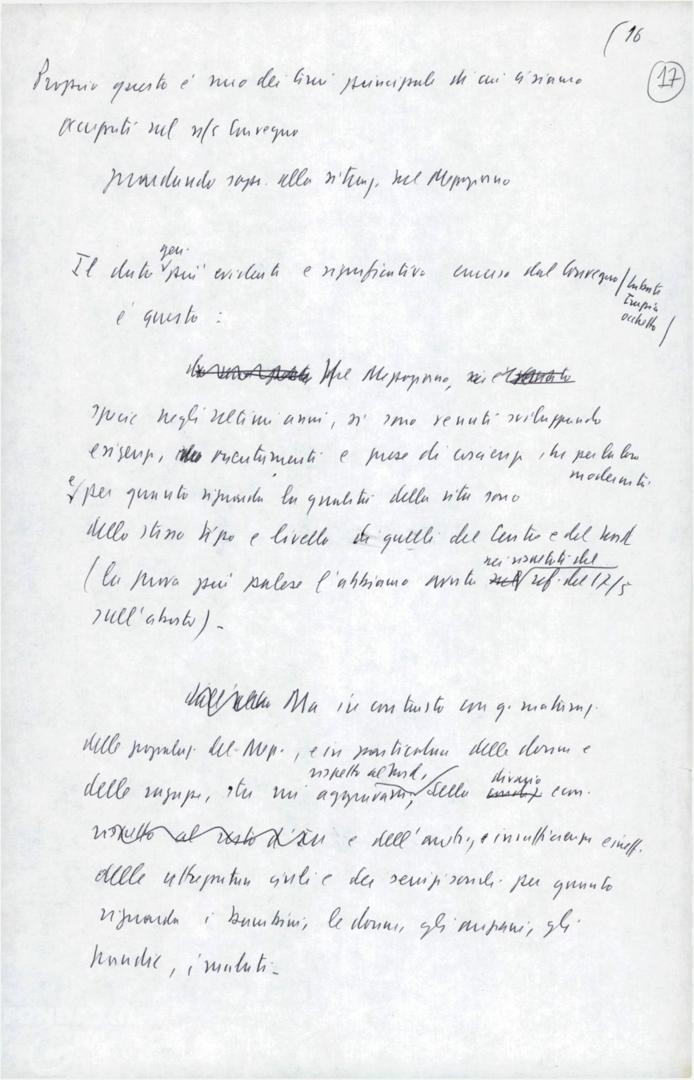 16
17
Proprio questo è uno dei temi principali di cui ci siamo
occupati nel n/s Convegno
guardando sopr. alla situaz. nel Mezzogiorno
gen.
Il dato più evidente e significativo emerso dal Convegno
è questo :
Nel Mezzogiorno,
specie negli ultimi anni, si sono venuti sviluppando
esigenze, orientamenti e prese di coscienza che per la loro
modernità
e per quanto riguarda la qualità della vita sono
dello stesso tipo e livello di quelli del Centro e del Nord
nei risultati del
(la prova più palese l'abbiamo avuta ref. del 17/5
sull'aborto).
Ma in contrasto con q. maturaz.
delle popolaz. del Mezz., e in particolare delle donne e
rispetto al Nord, divario
delle ragazze, sta un aggravarsi, dello econ.
rispetto al resto d'It. e dell'arretr. e insufficienze e ineff.
delle attrezzature civili e dei servizi sociali per quanto
riguarda i bambini, le donne, gli anziani, gli
handic., i malati.